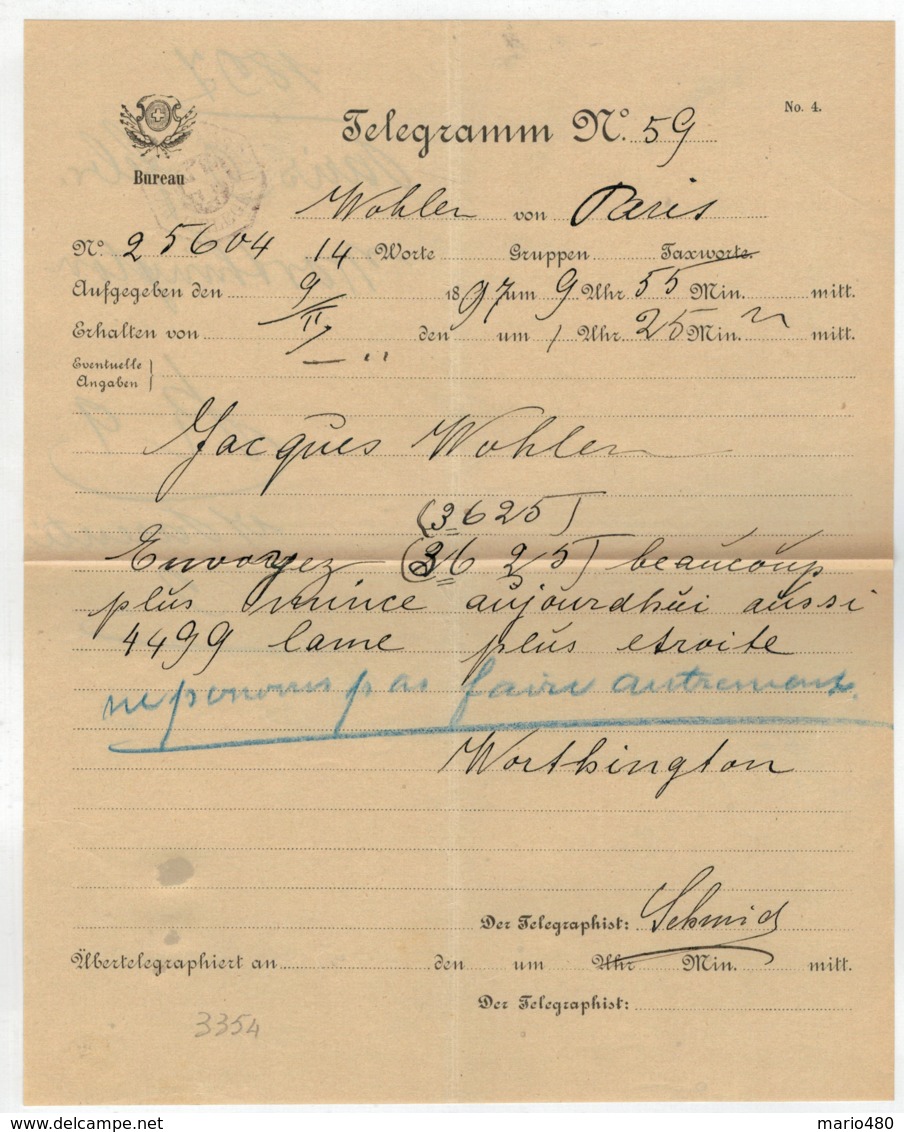 No. 4.
Telegramm No. 59
Bureau
Wohlen von Paris
No. 25604 14 Worte Gruppen Taxworte.
Aufgegeben den 9/II 1897 um 9 Uhr 55 Min. mitt.
Erhalten von den um 1 Uhr 25 Min. mitt.
Eventuelle
Angaben
Jacques Wohlen
(3625)
Envoyez (3625) beaucoup
plus mince aujourdhui aussi
4499 lame plus etroite
ne pouvons pas faire autrement.
Worthington
Der Telegraphist: Schmid
Übertelegraphiert an den um Uhr Min. mitt.
Der Telegraphist:
3354
mario480